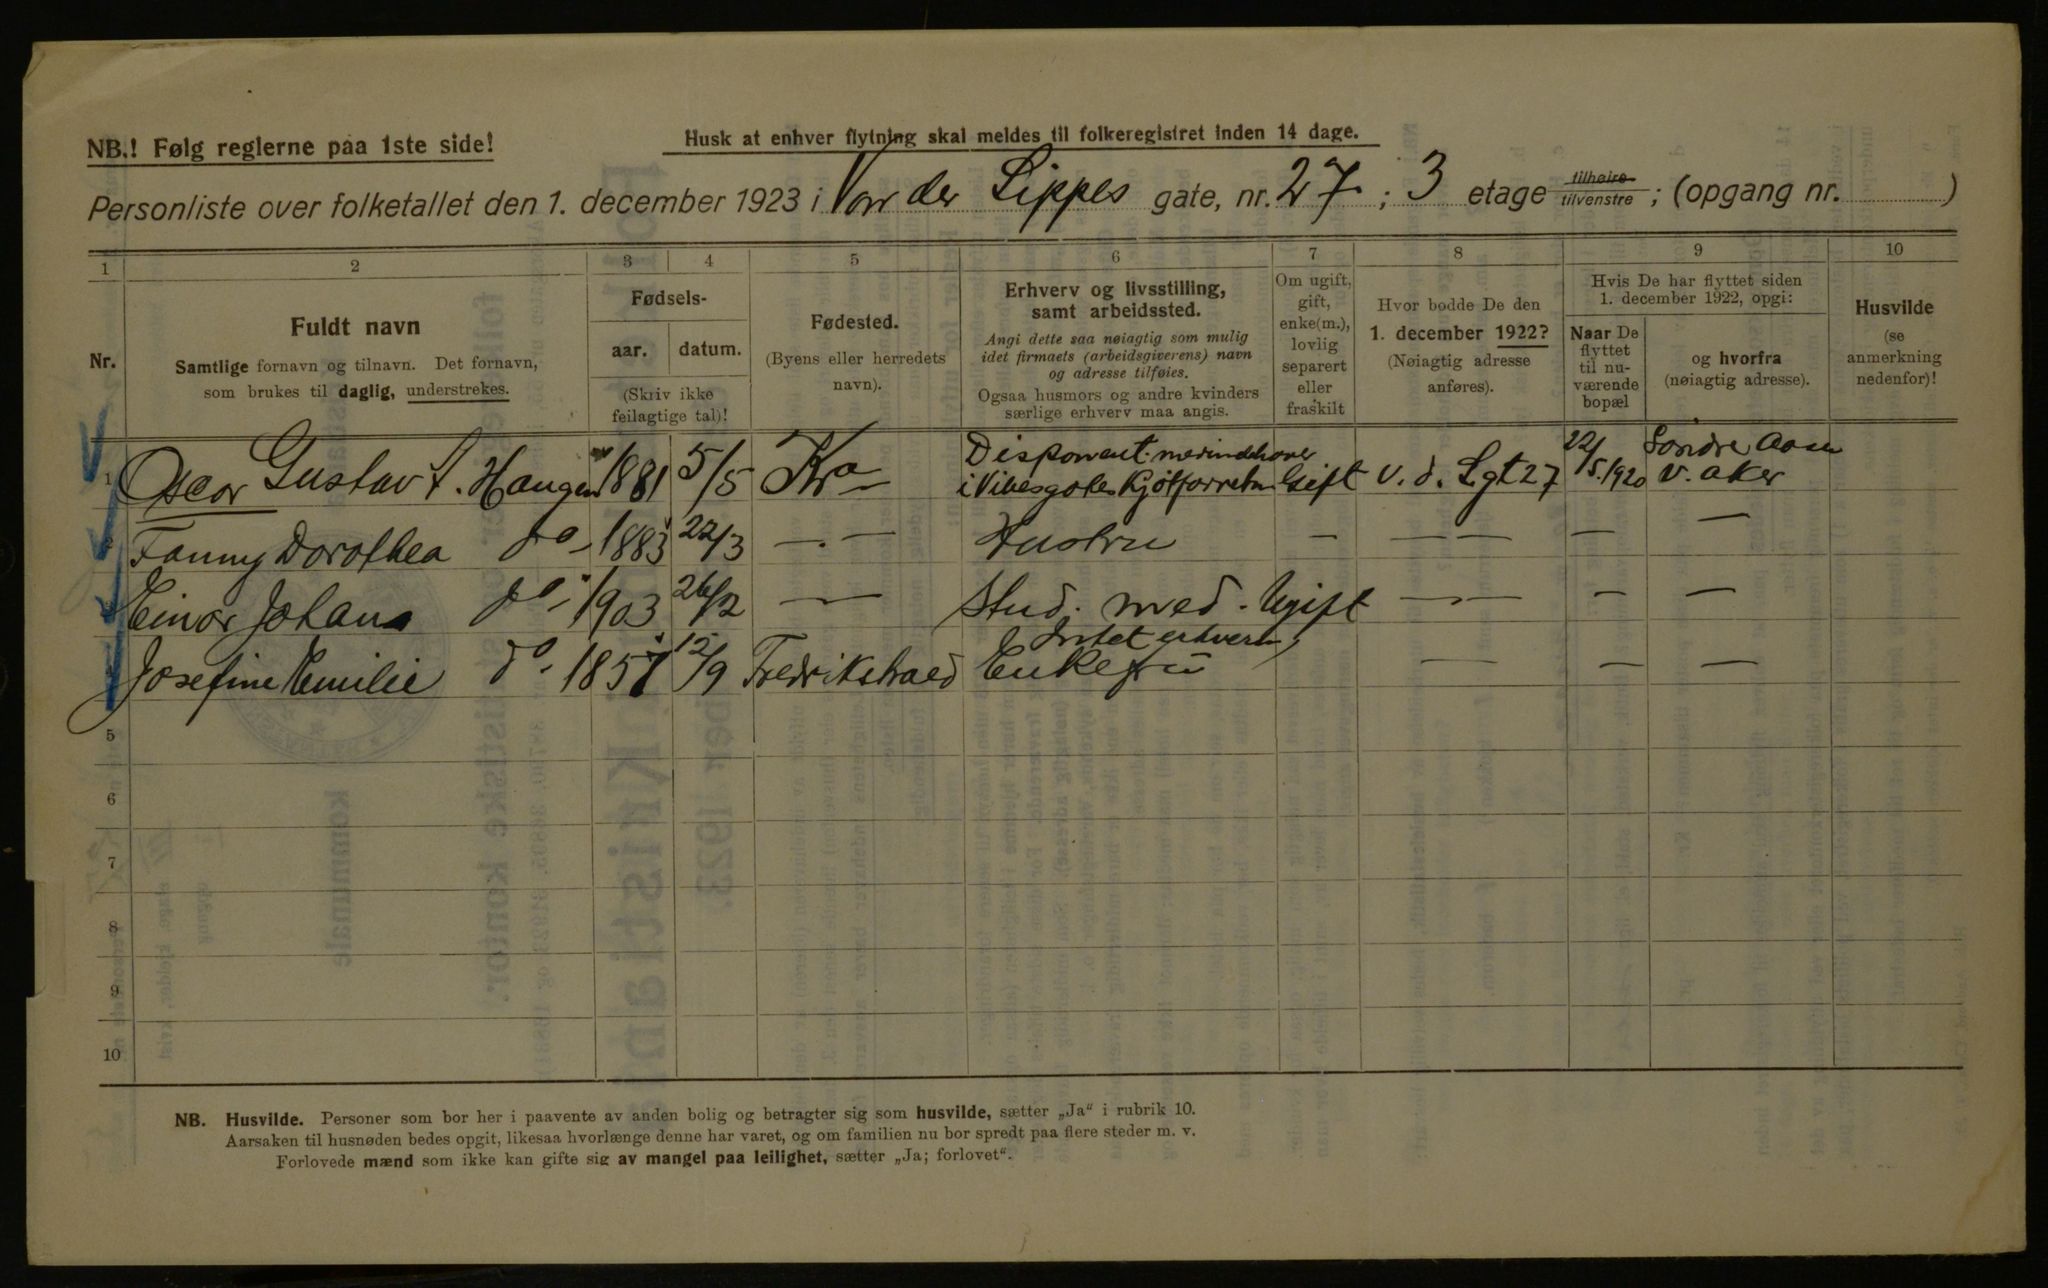 NB.! Følg reglerne paa 1ste side!
Husk at enhver flytning skal meldes til folkeregistret inden 14 dage.
Personliste over folketallet den 1. december 1923 i Von der Lippes gate, nr. 27 ; 3 etage tilhøire/tilvenstre ; (opgang nr. )
1 2 3 4 5 6 7 8 9 10
Nr.
Fuldt navn
Samtlige fornavn og tilnavn. Det fornavn,
som brukes til daglig, understrekes.
Fødsels-
aar. datum.
(Skriv ikke
feilagtige tal)!
Fødested.
(Byens eller herredets
navn).
Erhverv og livsstilling,
samt arbeidssted.
Angi dette saa nøiagtig som mulig
idet firmaets (arbeidsgiverens) navn
og adresse tilføies.
Ogsaa husmors og andre kvinders
særlige erhverv maa angis.
Om ugift,
gift,
enke(m.),
lovlig
separert
eller
fraskilt
Hvor bodde De den
1. december 1922?
(Nøiagtig adresse
anføres).
Hvis De har flyttet siden
1. december 1922, opgi:
Naar De
flyttet
til nu-
værende
bopæl
og hvorfra
(nøiagtig adresse).
Husvilde
(se
anmerkning
nedenfor)!
1 Oscar Gustav A. Haugen 1881 5/5 Kra Disponent. medindehaver i Vibesgates Kjötforretn Gift v. d. Lgt 27 22/5.1920 Söndre Aasen v. Aker
2 Fanny Dorothea do - 1883 22/3 — . — Hustru — — — — —
3 Einar Johan do - 1903 26/2 — Stud. med. Ugift — — — —
4 Josefine Emilie do - 1857 12/9 Fredrikstad Enkefru Intet erhverv — — —
5
6
7
8
9
10
NB. Husvilde. Personer som bor her i paavente av anden bolig og betragter sig som husvilde, sætter „Ja“ i rubrik 10.
Aarsaken til husnøden bedes opgit, likesaa hvorlænge denne har varet, og om familien nu bor spredt paa flere steder m. v.
Forlovede mænd som ikke kan gifte sig av mangel paa leilighet, sætter „Ja; forlovet“.